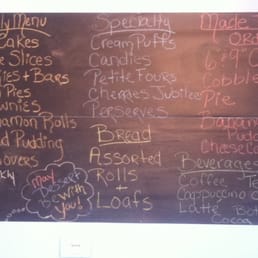 ly Menu
Cakes
e Slices
ies + Bars
Pies
ownies
namon Rolls
d Pudding
overs
May
Dessert
Be
With
You!
Specialty
Cream Puffs
Candies
Petite Fours
Cherries Jubilee
Perserves
Bread
Assorted
Rolls
+
Loafs
Made
Or
6" + 9" C
Cobble
Pie
Banana
Pudd
Cheesec
Beverages
Coffee Te
Cappuccino C
Latte Bot
Cocoa